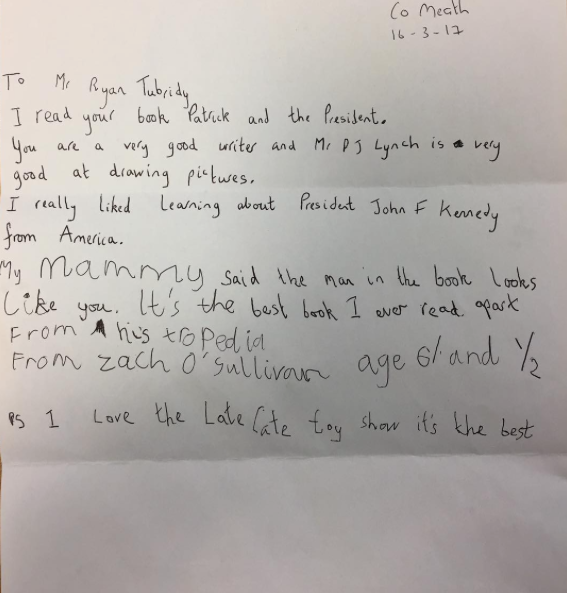 Co Meath
16-3-17
To Mr Ryan Tubridy
I read your book Patrick and the President.
You are a very good writer and Mr PJ Lynch is a very
good at drawing pictures.
I really liked learning about President John F Kennedy
from America.
My Mammy said the man in the book looks
like you. It's the best book I ever read apart
From A his tropedia
From Zach O'Sullivan age 6/ and 1/2
PS I Love the Late Late toy show it's the best